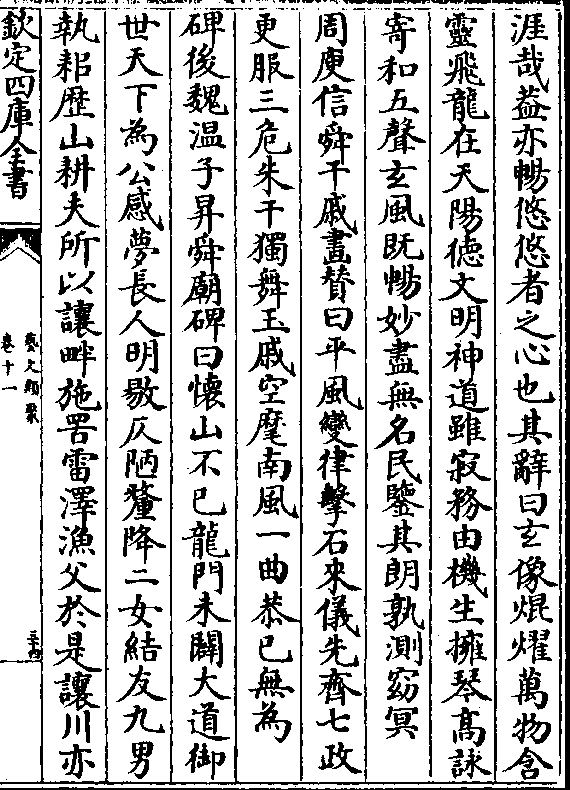 涯哉益亦暢悠悠者之心也其辭曰玄像焜燿萬物含
靈飛龍在天陽德文明神道雖寂務由機生擁琴高詠
寄和五聲玄風既暢妙盡無名民鑒其朗孰測窈冥
周庾信舜干戚畫贊曰平風變律擊石來儀先齊七政
更服三危朱干獨舞玉戚空麾南風一曲恭已無為
碑後魏溫子昇舜廟碑曰懷山不已龍門未闢大道御
世天下為公感夢長人明敭仄陋釐降二女結友九男
執耜歴山耕夫所以讓畔施罟雷澤漁父於是讓川亦
欽定四庫全書
藝文類聚
卷十一
三十四